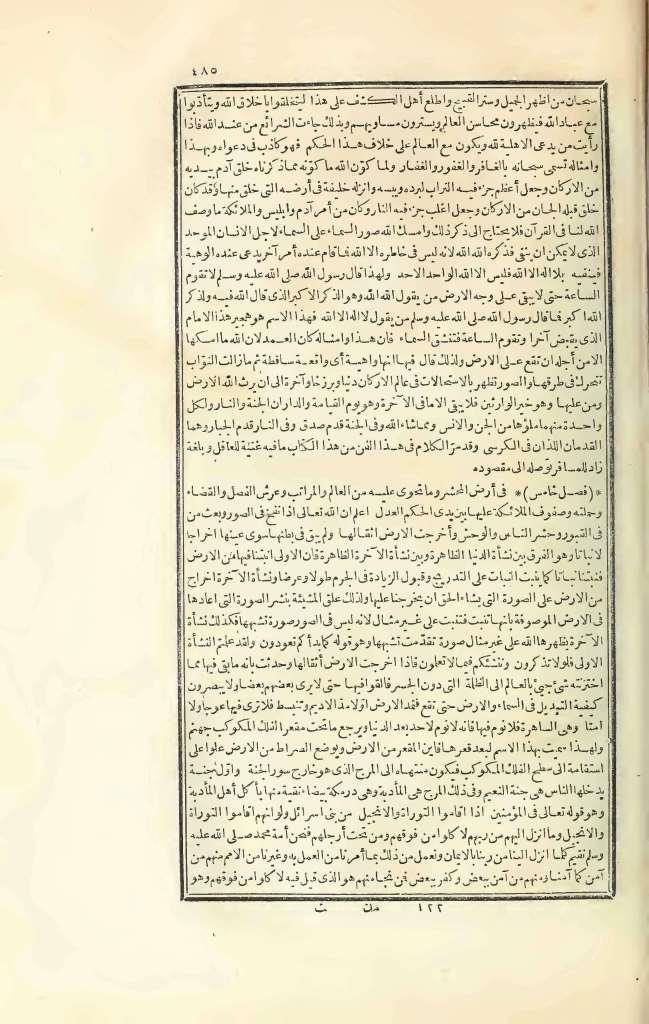 ٤٨٥
سبحان من اظهر الجميل وستر القبيح واطلع أهل الكشف على هذا ليتخلقوا باخلاق الله ويتأدبوا
مع عباد الله فيظهرون محاسن العالم ويسترون مساويهم وبذلك جاءت الشرائع من عند الله فاذا
رأيت من يدعى الاهلية لله ويكون مع العالم على خلاف هذا الحكم فهو كاذب فى دعواه وبهذا
وامثاله تسمى سبحانه بالغافر والغفور والغفار ولما كوّن الله ما كوّنه مما ذكرناه خلق آدم بيديه
من الاركان وجعل أعظم جزء فيه التراب لبرده ويبسه وانزله خليفة فى أرضه التى خلق منها وقد كان
خلق قبله الجان من الاركان وجعل اغلب جزء فيه النار وكان من أمر آدم وابليس والملائكة ما وصف
الله لنا فى القرآن فلا يحتاج الى ذكر ذلك وامسك الله صور السماء على السماء لاجل الانسان الموحد
الذى لا يمكن ان ينفى فذكره الله الله لانه ليس فى خاطره الا الله فما قام عنده أمر آخر يدعى عنده الوهية
فينفيه بلا اله الا الله فليس الا الله الواحد الاحد ولهذا قال رسول الله صلى الله عليه وسلم لا تقوم
الساعة حتى لا يبقى على وجه الارض من يقول الله الله وهو الذكر الاكبر الذى قال الله فيه ولذكر
الله اكبر فما قال رسول الله صلى الله عليه وسلم من يقول لا اله الا الله فهذا الاسم هو هجير هذا الامام
الذى يقبض آخرا وتقوم الساعة فتنشق السماء فان هذا وامثاله كان العمد لان الله ما امسكها
الا من أجله ان تقع على الارض ولذلك قال فيها انها واهية أى واقعة ساقطة ثم مازالت النوّاب
تتحرك فى طرقها والصور تظهر بالاستحالات فى عالم الاركان دنيا وبرزخا وآخرة الى ان يرث الله الارض
ومن عليها وهو خير الوارثين فلا يبقى الا ما فى الآخرة وهو يوم القيامة والداران الجنة والنار ولكل
واحدة منهما ملؤها من الجن والانس ومما شاء الله وفى الجنة قدم صدق وفى النار قدم الجبار وهما
القدمان اللذان فى الكرسى وقد مرّ الكلام فى هذا الفن من هذا الكتاب ما فيه غنية للعاقل وبلغة
زاد للمسافر توصله الى مقصوده
*(فصل خامس)* فى أرض المحشر وما تحوى عليه من العالم والمراتب وعرش الفصل والقضاء
وحملته وصفوف الملائكة عليها بين يدى الحكم العدل اعلم ان الله تعالى اذا نفخ فى الصور وبعث من
فى القبور وحشر الناس والوحش وأخرجت الارض اثقالها ولم يبق فى بطنها سوى عينها اخراجا
لا نباتا وهو الفرق بين نشأة الدنيا الظاهرة وبين نشأة الآخرة الظاهرة فان الاولى انبتنا فيها من الارض
فنبتنا نباتا كما ينبت النبات على التدريج وقبول الزيادة فى الجرم طولا وعرضا ونشأة الآخرة اخراج
من الارض على الصورة التى يشاء الحق ان يخرجنا عليها ولذلك علق المشيئة بنشر الصورة التى اعادها
فى الارض الموصوفة بانها تنبت فتنبت على غير مثال لانه ليس فى الصور صورة تشبهها فكذلك نشأة
الآخرة يظهرها الله على غير مثال صورة تقدمت تشبهها وهو قوله كما بدأكم تعودون ولقد علمتم النشأة
الاولى فلولا تذكرون وننشئكم فيما لا تعلمون فاذا اخرجت الارض أثقالها وحدثت بانه ما بقى فيها مما
اختزنته شئ جئ بالعالم الى الظلمة التى دون الجسر فالقوا فيها حتى لا يرى بعضهم بعضا ولا يبصرون
كيفية التبديل فى السماء والارض حتى تقع فتمد الارض اولا مد الاديم وتنبسط فلا ترى فيها عوجا ولا
امتا وهى الساهرة فلا نوم فيها فانه لا نوم لاحد بعد الدنيا ويرجع ما تحت مقعر الفلك المكوكب جهنم
ولهذا سميت بهذا الاسم لبعد قعرها فاين المقعر من الارض ويوضع الصراط من الارض علوا على
استقامة الى سطح الفلك المكوكب فيكون منتهاه الى المرج الذى هو خارج سور الجنة واوّل جنة
يدخلها الناس هى جنة النعيم وفى ذلك المرج هى المأدبة وهى درمكة بيضاء نقية منها يأكل أهل المأدبة
وهو قوله تعالى فى المؤمنين اذا اقاموا التوراة والانجيل من بنى اسرائيل ولو انهم اقاموا التوراة
والانجيل وما انزل اليهم من ربهم لاكلوا من فوقهم ومن تحت أرجلهم فنحن أمة محمد صلى الله عليه
وسلم نقيم كلما انزل الينا من ربنا بالايمان ونعمل من ذلك بما أمرنا من العمل به وغيرنا من الامم منهم من
آمن كما آمنا ومنهم من آمن ببعض وكفر ببعض فمن نجا منهم هو الذى قيل فيه لاكلوا من فوقهم وهو
٤٢٢ مك ت